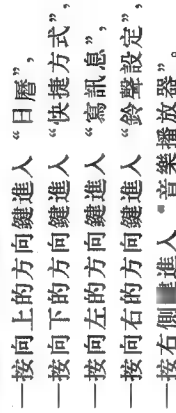 —按向上的方向鍵進入“日曆”，
—按向下的方向鍵進入“快捷方式”，
—按向左的方向鍵進入“寫訊息”，
—按向右的方向鍵進入“鈴聲設定”，
—按右側鍵進入“音樂播放器”。